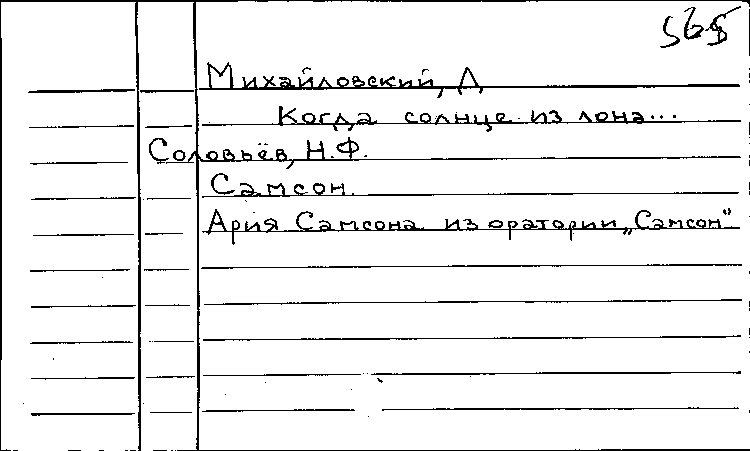 565
Михайловский, Д
Когда солнце из лона...
Соловьёв, Н.Ф.
Самсон.
Ария Самсона из оратории „Самсон"